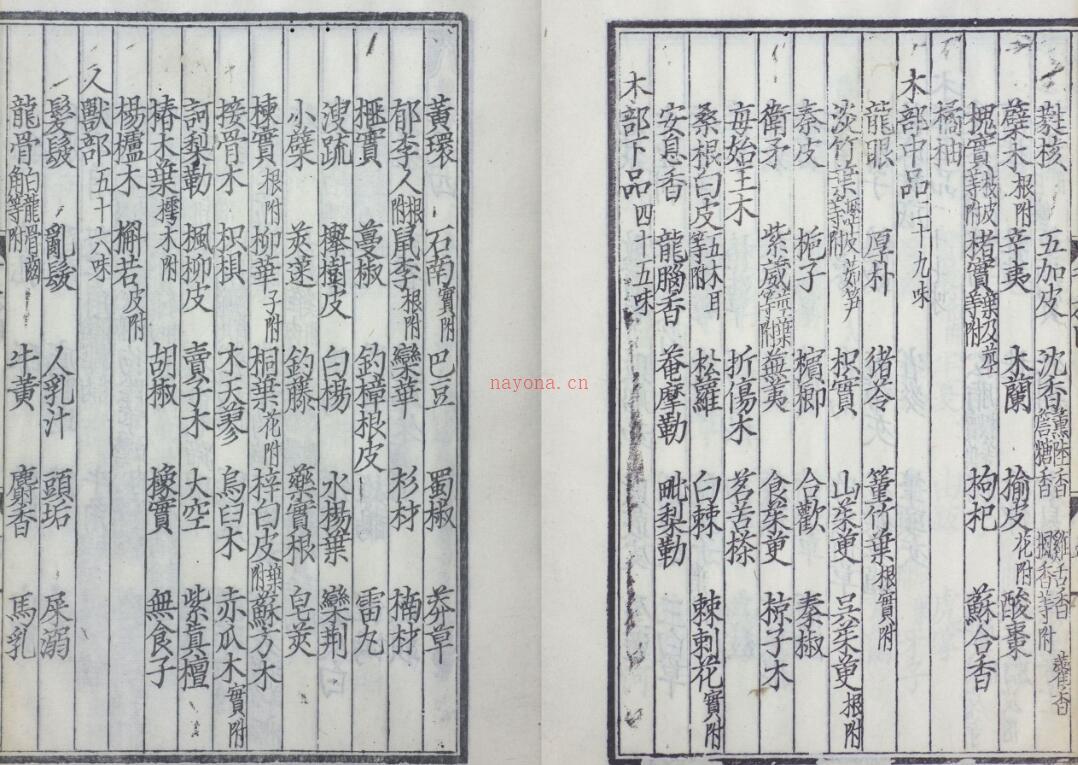 蕤核 五加皮 沈香薰陸香 雞舌香 藿香 詹糖香 楓香等附
蘗木根附 辛夷 木蘭 榆皮花附 酸棗
槐實枝皮等附 楮實葉及莖等附 枸杞 蘇合香
橘柚
木部中品二十九味
龍眼 厚朴 猪苓 篁竹葉根實附
淡竹葉瀝皮茹笋等附 枳實 山茱萸 吳茱萸根附
秦皮 梔子 檳榔 合歡 秦椒
衛矛 紫葳莖葉等附 蕪荑 食茱萸 椋子木
每始王木 折傷木 茗苦搽
桑根白皮五木耳等附 松蘿 白棘 棘刺花實附
安息香 龍腦香 菴摩勒 毗梨勒
木部下品四十五味
黃環 石南實附 巴豆 蜀椒 莽草
郁李人根附 鼠李根附 欒華 杉材 楠材
榧實 蔓椒 釣樟根皮 雷九
溲疏 櫸樹皮 白楊 水楊葉 欒荆
小蘗 莢蒾 釣藤 藥實根 皂莢
楝實根附 柳華子附 桐葉花附 梓白皮葉附 蘇方木
接骨木 枳椇 木天蓼 烏臼木 赤瓜木實附
訶梨勒 楓柳皮 賣子木 大空 紫真檀
椿木葉樗木附 胡椒 橡實 無食子
楊櫨木 槲若皮附
人獸部五十六味
髮髲 亂髮 人乳汁 頭垢 屎溺
龍骨白龍骨齒角等附 牛黃 麝香 馬乳
nayona.cn